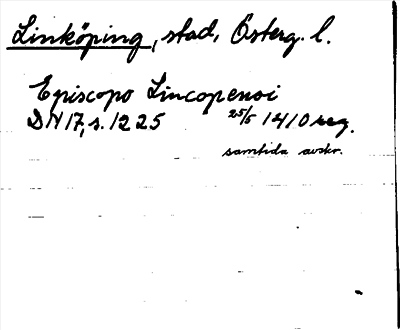 Linköping, stad, Österg. l.
Episcopo Lincopensi
DN 17, s. 1225 25/5 1410 reg.
samtida avskr.